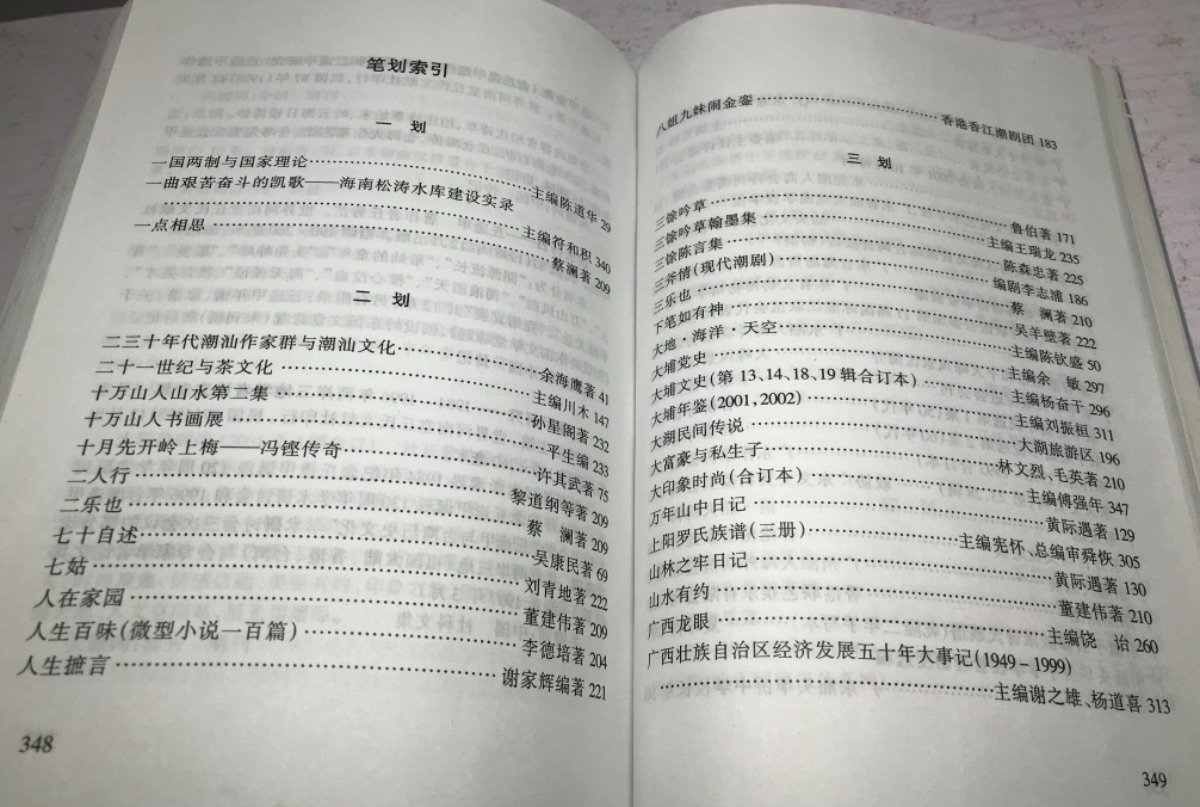 笔划索引
一 划
一国两制与国家理论……主编陈道华 29
一曲艰苦奋斗的凯歌——海南松涛水库建设实录
……主编符和积 340
一点相思……蔡澜著 209
二 划
二三十年代潮汕作家群与潮汕文化……余海鹰著 41
二十一世纪与茶文化……主编川木 147
十万山人山水第二集……孙星阁著 232
十万山人书画展……平生编 233
十月先开岭上梅——冯铿传奇……许其武著 75
二人行……黎道纲等著 209
二乐也……蔡 澜著 209
七十自述……吴康民著 69
七姑……刘青地著 222
人在家园……董建伟著 209
人生百味(微型小说一百篇)……李德培著 204
人生摭言……谢家辉编著 221
348
八姐九妹闹金銮……香港香江潮剧团 183
三 划
三馀吟草……鲁伯著 171
三馀吟草翰墨集……主编王瑞龙 235
三馀陈言集……陈森忠著 225
三斧情(现代潮剧)……编剧李志浦 186
三乐也……蔡 澜著 210
下笔如有神……吴羊璧著 222
大地·海洋·天空……主编陈钦盛 50
大埔党史……主编余 敏 297
大埔文史(第 13、14、18、19 辑合订本)……主编杨奋干 296
大埔年鉴(2001,2002)……主编刘振桓 311
大湖民间传说……大湖旅游区 196
大富豪与私生子……林文烈、毛英著 210
大印象时尚(合订本)……主编傅强年 347
万年山中日记……黄际遇著 129
上阳罗氏族谱(三册)……主编宪怀、总编审舜恢 305
山林之牢日记……黄际遇著 130
山水有约……董建伟著 210
广西龙眼……主编饶 诒 260
广西壮族自治区经济发展五十年大事记(1949-1999)
……主编谢之雄、杨道喜 313
349